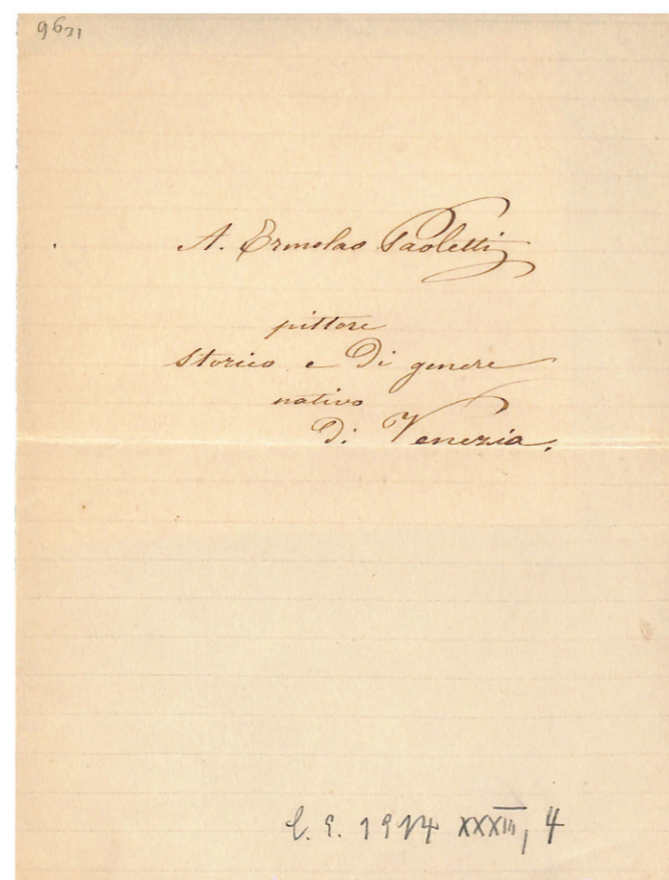 9671
A. Ermolao Paoletti
pittore
storico e Di genere
nativo
Di Venezia.
C. S. 1914 XXXIII, 4